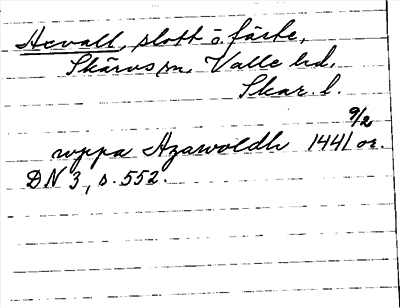 Axvall, slott o. färbe,
Skärvs sn, Valle hd.
Skar. l.
9/2
uppa Azawoldh 1441 or.
DN 3, s. 552.